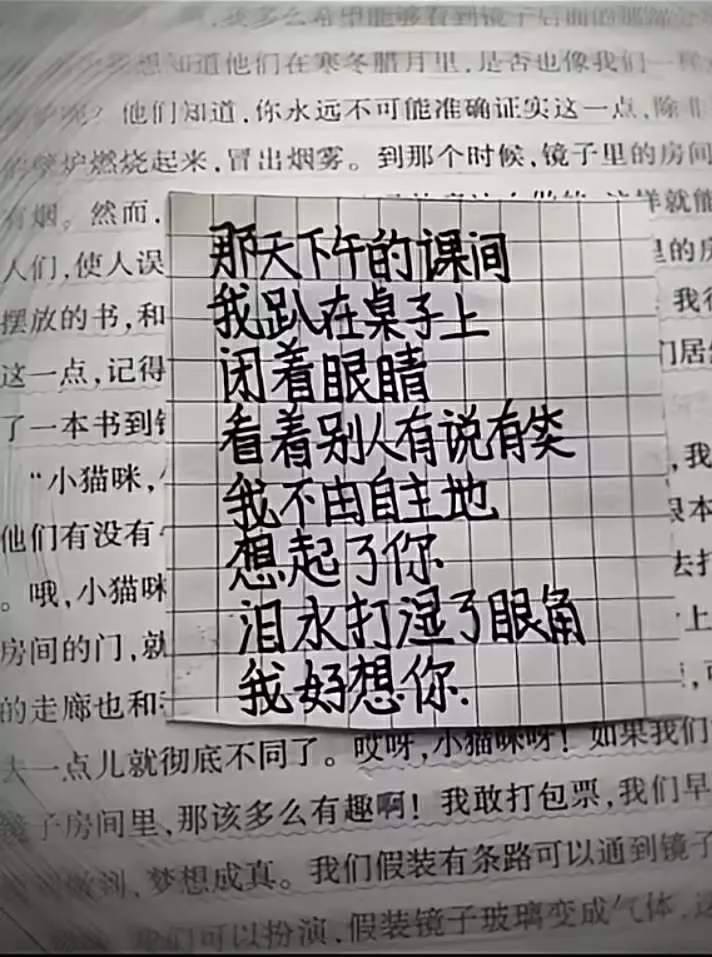 我多么希望能够看到镜子后面的那部分
想知道他们在寒冬腊月里，是否也像我们一样
他们知道，你永远不可能准确证实这一点，除非
的壁炉燃烧起来，冒出烟雾。到那个时候，镜子里的房间
有烟。然而，
这样就能
人们，使人误
里的房
摆放的书，和
我很
这一点，记得
们居然
了一本书到镜
“小猫咪，
，我
他们有没有
根本
。哦，小猫咪
去打
房间的门，就
上
的走廊也和
那天下午的课间
我趴在桌子上
闭着眼睛
看着别人有说有笑
我不由自主地
想起了你
泪水打湿了眼角
我好想你.
大一点儿就彻底不同了。哎呀，小猫咪呀！如果我们
镜子房间里，那该多么有趣啊！我敢打包票，我们早
做到，梦想成真。我们假装有条路可以通到镜子
我们可以扮演，假装镜子玻璃变成气体，这